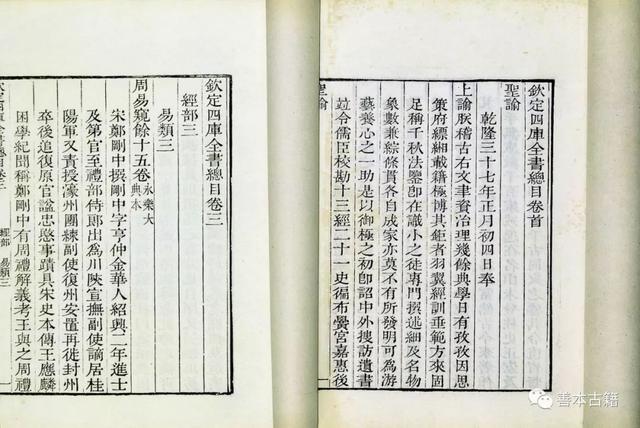 欽定四庫全書總目卷首
聖諭
乾隆三十七年正月初四日奉
上諭朕稽古右文聿資治理幾餘典學日有孜孜因思
策府縹緗載籍極博其鉅者羽翼經訓垂範方來固
足稱千秋法鑒即在識小之徒專門撰述細及名物
象數兼綜條貫各自成家亦莫不有所發明可為游
藝養心之一助是以御極之初即詔中外搜訪遺書
竝令儒臣校勘十三經二十一史徧布黌宮嘉惠後
聖諭
欽定四庫全書總目卷三
經部三
易類三
周易窺餘十五卷永樂大典本
宋鄭剛中撰剛中字亨仲金華人紹興二年進士
及第官至禮部侍郎出為川陝宣撫副使謫居桂
陽軍又責授濠州團練副使復州安置再徙封州
卒後追復原官諡忠愍事蹟具宋史本傳王應麟
困學紀聞稱鄭剛中有周禮解義考王與之周禮
欽定四庫全書總目卷三
經部 易類三
一
善本古籍